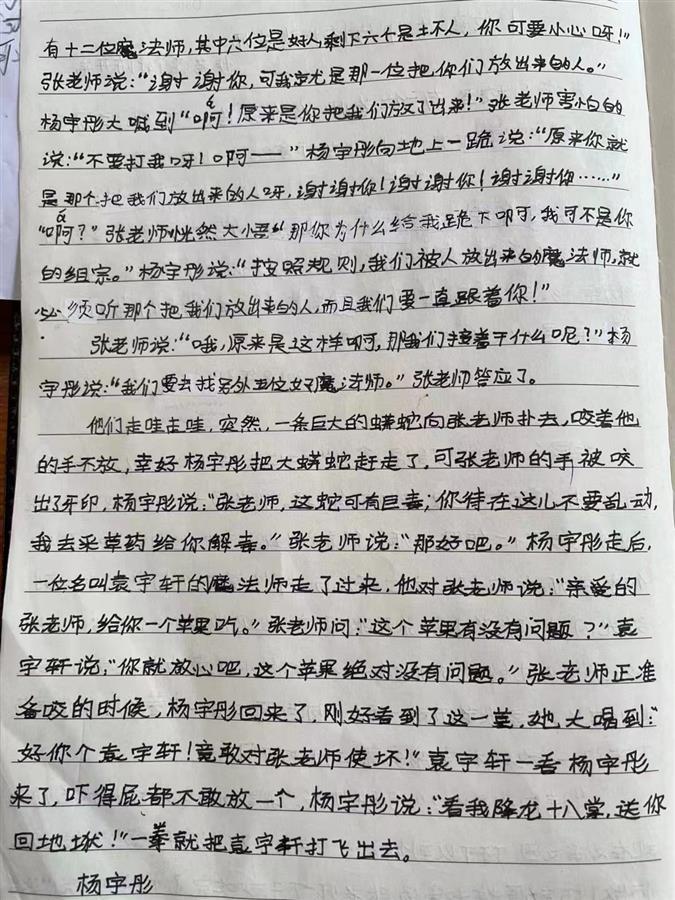 有十二位魔法师，其中六位是好人，剩下六个是坏人，你可要小心呀！”
张老师说：“谢谢你，可我就是那一位把你们放出来的人。”
杨宇彤大喊到“啊！原来是你把我们放了出来！”张老师害怕的
说：“不要打我呀！啊——”杨宇彤向地上一跪说：“原来你就
是那个把我们放出来的人呀，谢谢你！谢谢你！谢谢你……”
“啊？”张老师恍然大悟“那你为什么给我跪下啊，我可不是你
的组宗。”杨宇彤说：“按照规则，我们被人放出来的魔法师，就
必须听那个把我们放出来的人，而且我们要一直跟着你！”
张老师说：“哦，原来是这样啊，那我们接着干什么呢？”杨
宇彤说：“我们要去找另外五位好魔法师。”张老师答应了。
他们走哇走哇，突然，一条巨大的蟒蛇向张老师扑去，咬着他
的手不放，幸好杨宇彤把大蟒蛇赶走了，可张老师的手被咬
出了牙印，杨宇彤说：“张老师，这蛇可有巨毒；你待在这儿不要乱动，
我去采草药给你解毒。”张老师说：“那好吧。”杨宇彤走后，
一位名叫袁宇轩的魔法师走了过来，他对张老师说：“亲爱的
张老师，给你一个苹果吃。”张老师问：“这个苹果有没有问题？”袁
宇轩说：“你就放心吧，这个苹果绝对没有问题。”张老师正准
备咬的时候，杨宇彤回来了，刚好看到了这一幕，她大喝到：“
好你个袁宇轩！竟敢对张老师使坏！”袁宇轩一看杨宇彤
来了，吓得屁都不敢放一个，杨宇彤说：“看我降龙十八掌，送你
回地狱！”一拳就把袁宇轩打飞出去。
杨宇彤